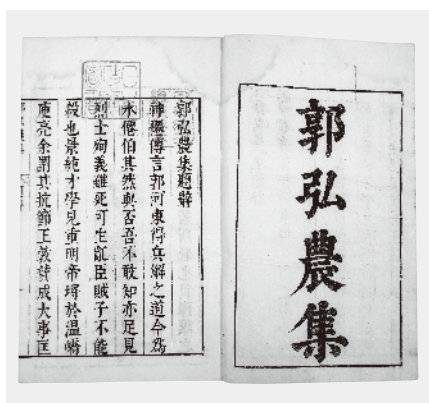 郭弘農集
郭弘農集題辭
神僊傳言郭河東得兵解之道今爲
水僊伯其然與否吾不敢知亦足見
烈士殉義雖死可生亂臣賊子不能
殺也景純才學見重明帝埒於溫嶠
庾亮余謂其抗節王敦贊成大事匡